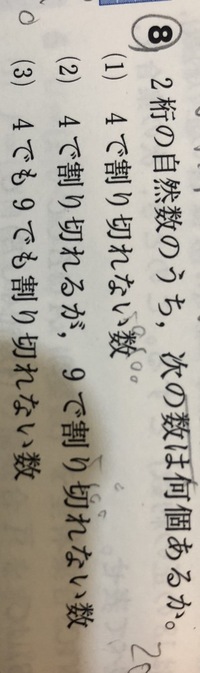 8 2桁の自然数のうち，次の数は何個あるか。
(1) 4で割り切れない数
(2) 4で割り切れるが，9で割り切れない数
(3) 4でも9でも割り切れない数